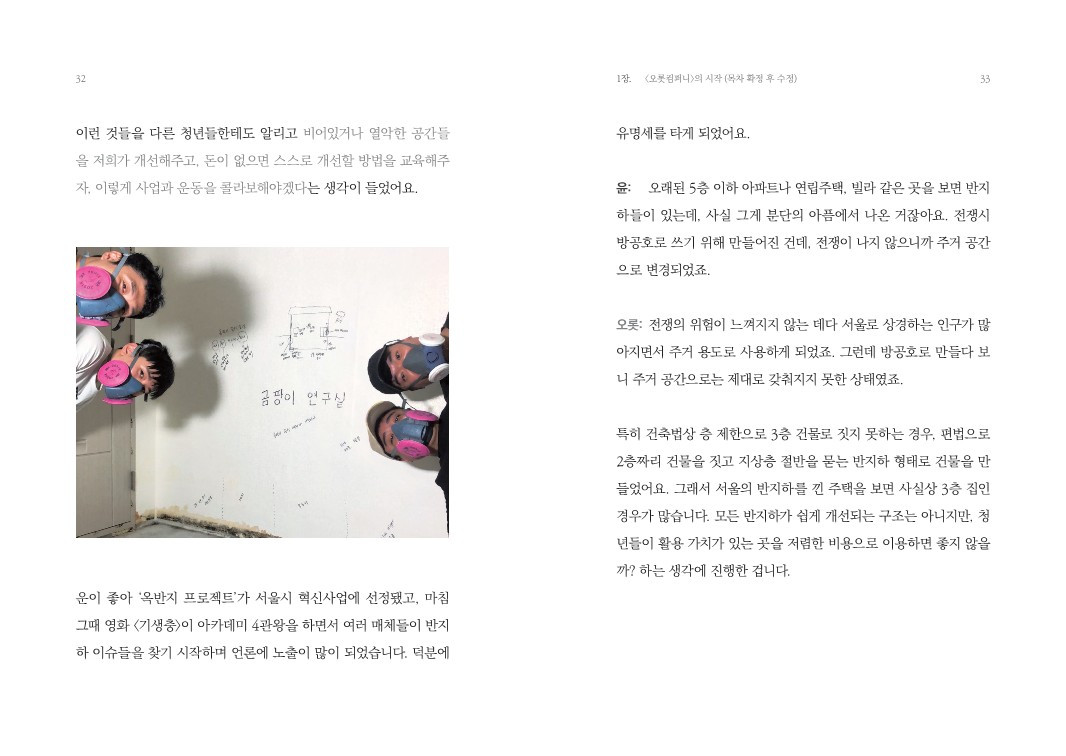 32
이런 것들을 다른 청년들한테도 알리고 비어있거나 열악한 공간들
을 저희가 개선해주고, 돈이 없으면 스스로 개선할 방법을 교육해주
자, 이렇게 사업과 운동을 콜라보해야겠다는 생각이 들었어요.
곰팡이 연구실
운이 좋아 '옥반지 프로젝트'가 서울시 혁신사업에 선정됐고, 마침
그때 영화 〈기생충〉이 아카데미 4관왕을 하면서 여러 매체들이 반지
하 이슈들을 찾기 시작하며 언론에 노출이 많이 되었습니다. 덕분에
1장. 〈오롯컴퍼니〉의 시작 (목차 확정 후 수정) 33
유명세를 타게 되었어요.
윤: 오래된 5층 이하 아파트나 연립주택, 빌라 같은 곳을 보면 반지
하들이 있는데, 사실 그게 분단의 아픔에서 나온 거잖아요. 전쟁시
방공호로 쓰기 위해 만들어진 건데, 전쟁이 나지 않으니까 주거 공간
으로 변경되었죠.
오롯: 전쟁의 위험이 느껴지지 않는 데다 서울로 상경하는 인구가 많
아지면서 주거 용도로 사용하게 되었죠. 그런데 방공호로 만들다 보
니 주거 공간으로는 제대로 갖춰지지 못한 상태였죠.
특히 건축법상 층 제한으로 3층 건물로 짓지 못하는 경우, 편법으로
2층짜리 건물을 짓고 지상층 절반을 묻는 반지하 형태로 건물을 만
들었어요. 그래서 서울의 반지하를 낀 주택을 보면 사실상 3층 집인
경우가 많습니다. 모든 반지하가 쉽게 개선되는 구조는 아니지만, 청
년들이 활용 가치가 있는 곳을 저렴한 비용으로 이용하면 좋지 않을
까? 하는 생각에 진행한 겁니다.